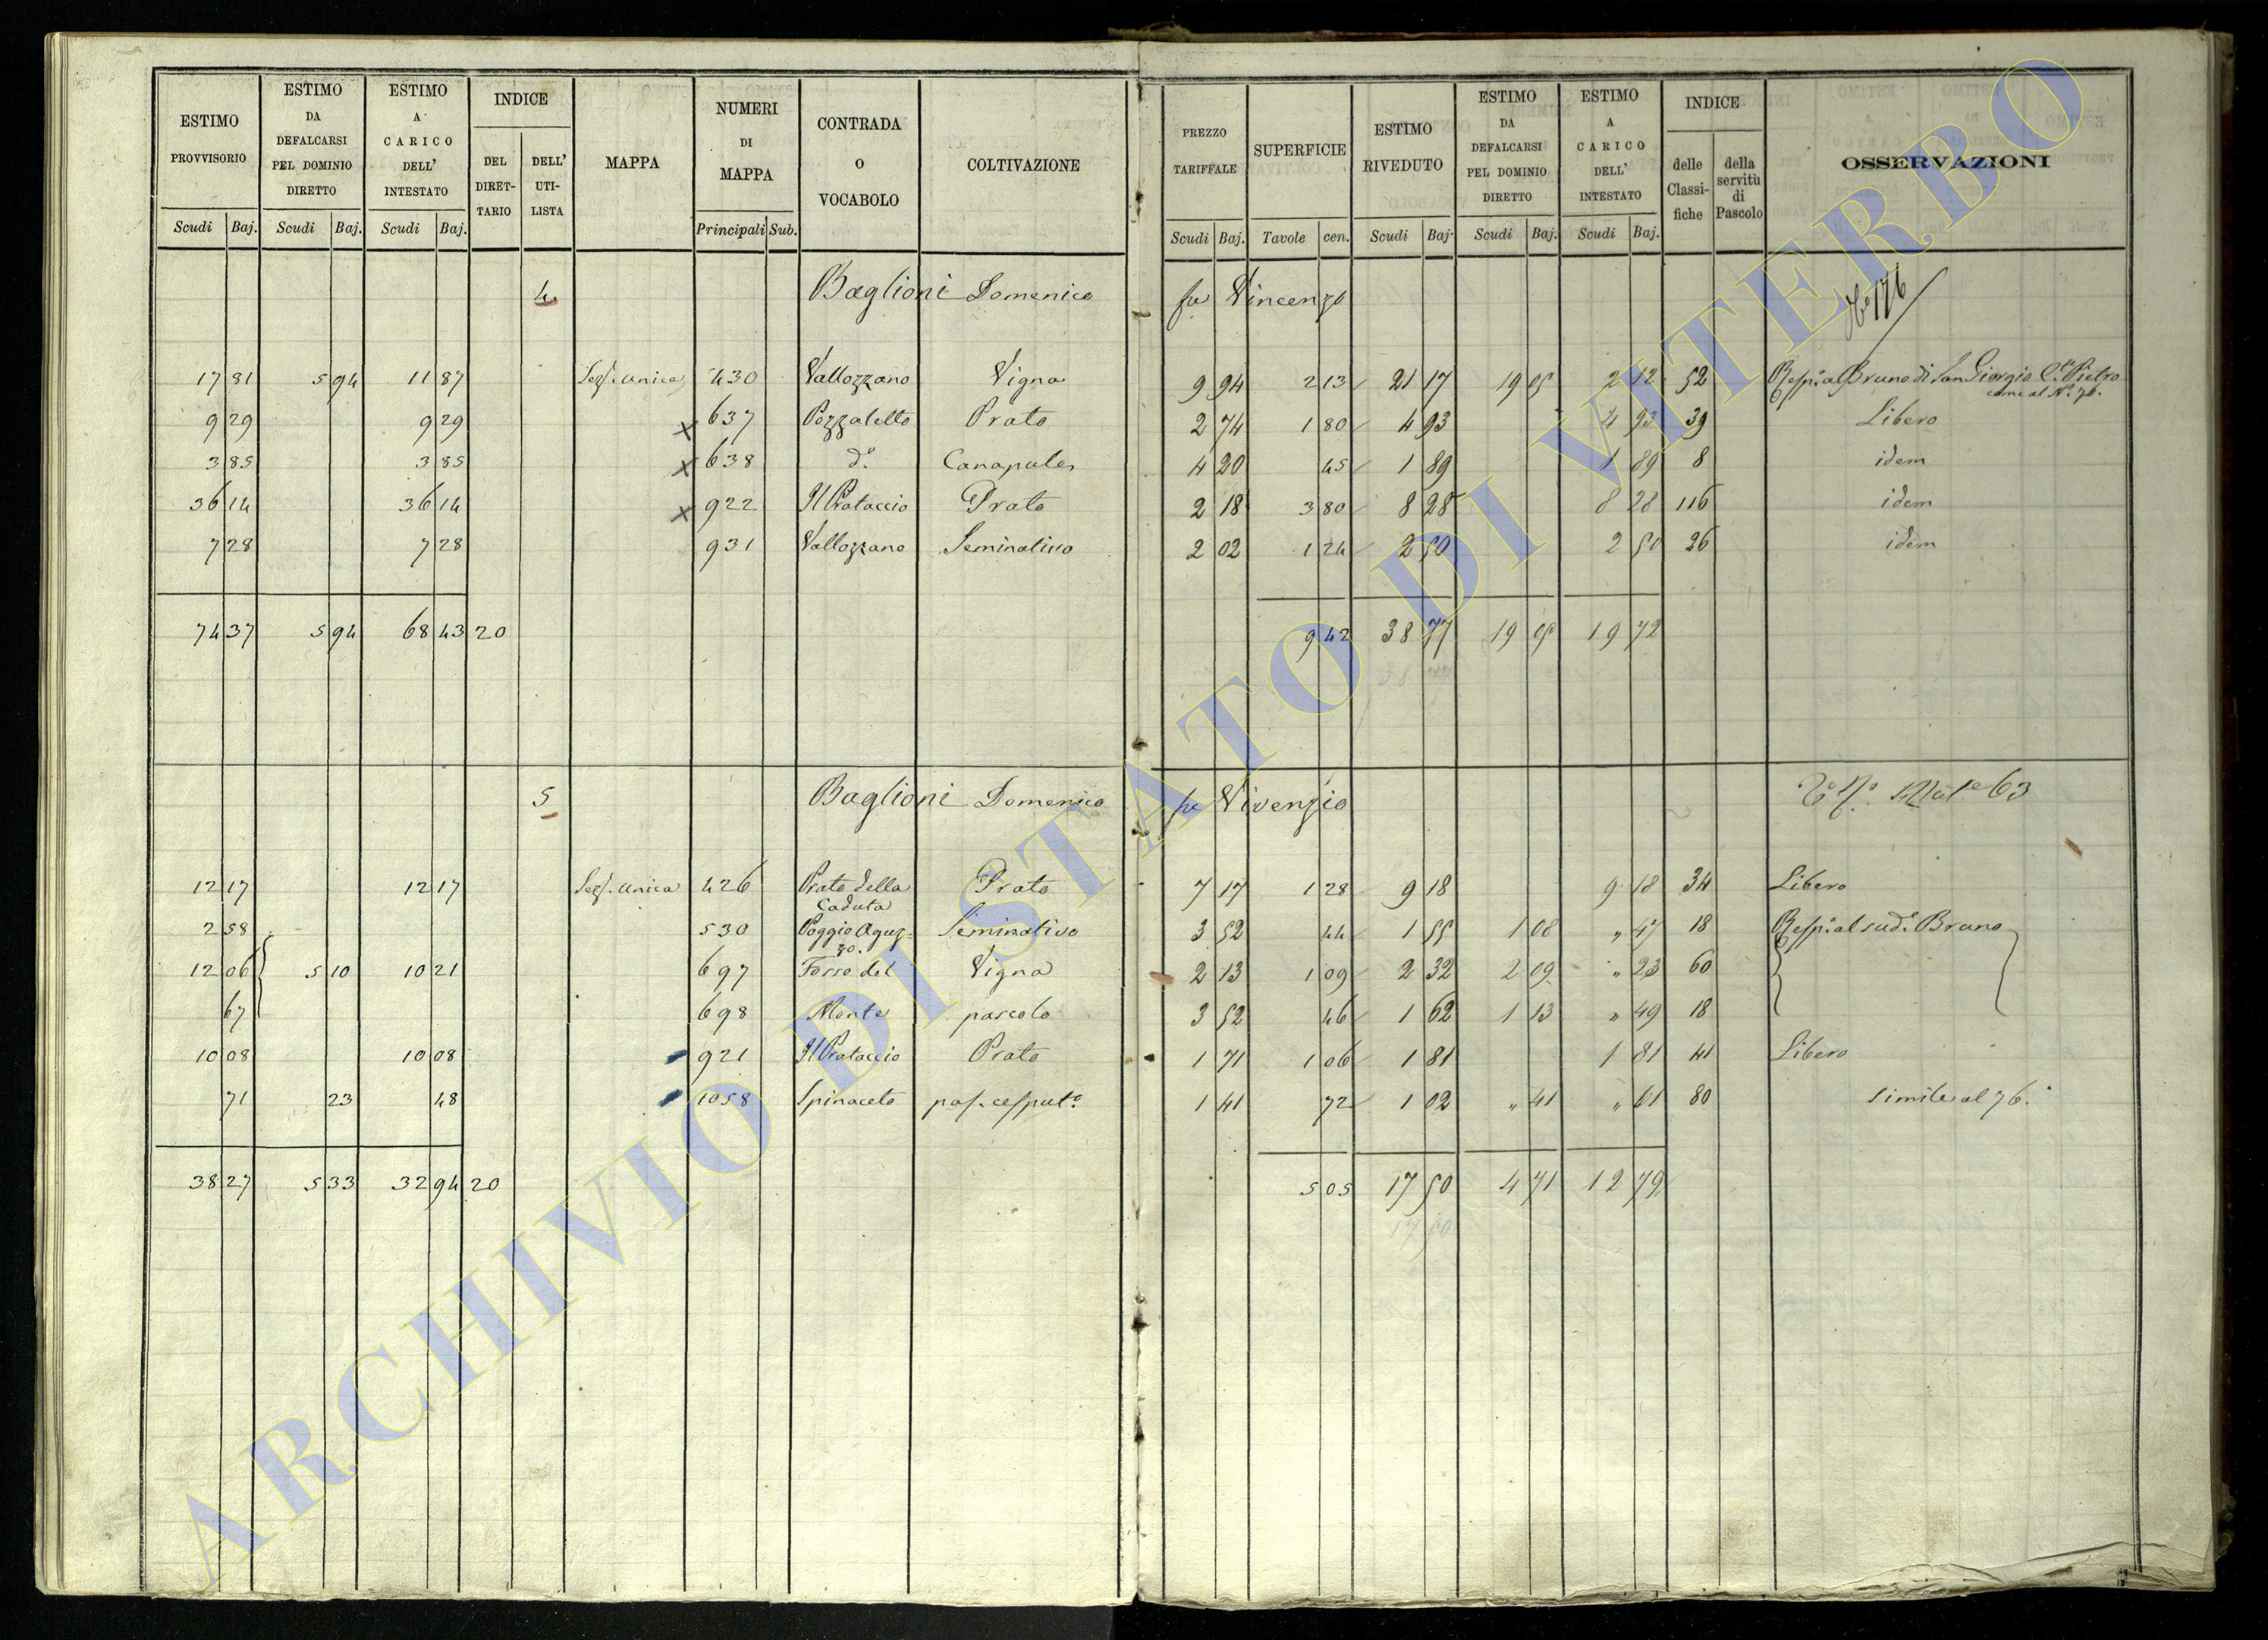 ESTIMO PROVVISORIO | ESTIMO DA DEFALCARSI PEL DOMINIO DIRETTO | ESTIMO A CARICO DELL' INTESTATO | INDICE | MAPPA | NUMERI DI MAPPA | CONTRADA O VOCABOLO | COLTIVAZIONE | PREZZO TARIFFALE | SUPERFICIE | ESTIMO RIVEDUTO | ESTIMO DA DEFALCARSI PEL DOMINIO DIRETTO | ESTIMO A CARICO DELL' INTESTATO | INDICE | OSSERVAZIONI
DEL DIRET-TARIO | DELL' UTI-LISTA | delle Classi-fiche | della servitù di Pascolo
Scudi | Baj. | Scudi | Baj. | Scudi | Baj. | Principali | Sub. | Scudi | Baj. | Tavole | cen. | Scudi | Baj. | Scudi | Baj. | Scudi | Baj.
4 Baglioni Domenico fu Vincenzo 176
17 81 | 5 94 | 11 87 | Sez. unica | 430 | Vallozzano | Vigna | 9 94 | 2 13 | 21 17 | 19 05 | 2 12 | 52 | Resp. al Bruno di San Giorgio C.te Pietro
come al N.o 76.
9 29 | 9 29 | x 637 | Pozzaletto | Prato | 2 74 | 1 80 | 4 93 | 4 93 | 39 | Libero
3 85 | 3 85 | x 638 | d.o | Canapule | 4 20 | 45 | 1 89 | 1 89 | 8 | idem
36 14 | 36 14 | x 922 | Il Prataccio | Prato | 2 18 | 3 80 | 8 28 | 8 28 | 116 | idem
7 28 | 7 28 | 931 | Vallozzano | Seminativo | 2 02 | 1 24 | 2 50 | 2 50 | 26 | idem
74 37 | 5 94 | 68 43 | 20 | 9 42 | 38 77 | 19 05 | 19 72
38 77
5 Baglioni Domenico fu Vivenzio 63
12 17 | 12 17 | Sez. unica | 426 | Prato della | Prato | 7 17 | 1 28 | 9 18 | 9 18 | 34 | Libero
Caduta
2 58 | 530 | Poggio Aguz- | Seminativo | 3 52 | 44 | 1 55 | 1 08 | " 47 | 18 | Resp. al sud.o Bruno
zo.
12 06 | 5 10 | 10 21 | 697 | Fosso del | Vigna | 2 13 | 1 09 | 2 32 | 2 09 | " 23 | 60
67 | 698 | Monte | pascolo | 3 52 | 46 | 1 62 | 1 13 | " 49 | 18
10 08 | 10 08 | 921 | Il Prataccio | Prato | 1 71 | 1 06 | 1 81 | 1 81 | 41 | Libero
71 | 23 | 48 | 1058 | Spinaceto | pas. cesput.o | 1 41 | 72 | 1 02 | " 41 | " 61 | 80 | simile al 76.
38 27 | 5 33 | 32 94 | 20 | 5 05 | 17 50 | 4 71 | 12 79
17 50
ARCHIVIO DI STATO DI VITERBO